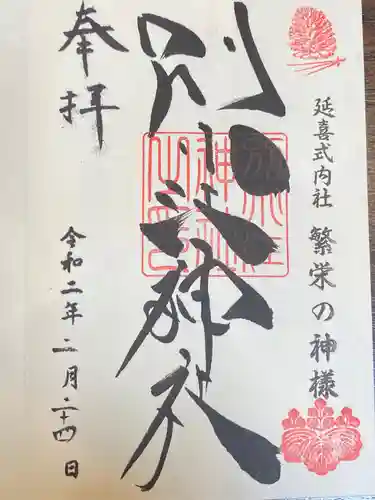 延喜式内社 繁栄の神様
別小江神社
奉拝
令和二年二月二十四日